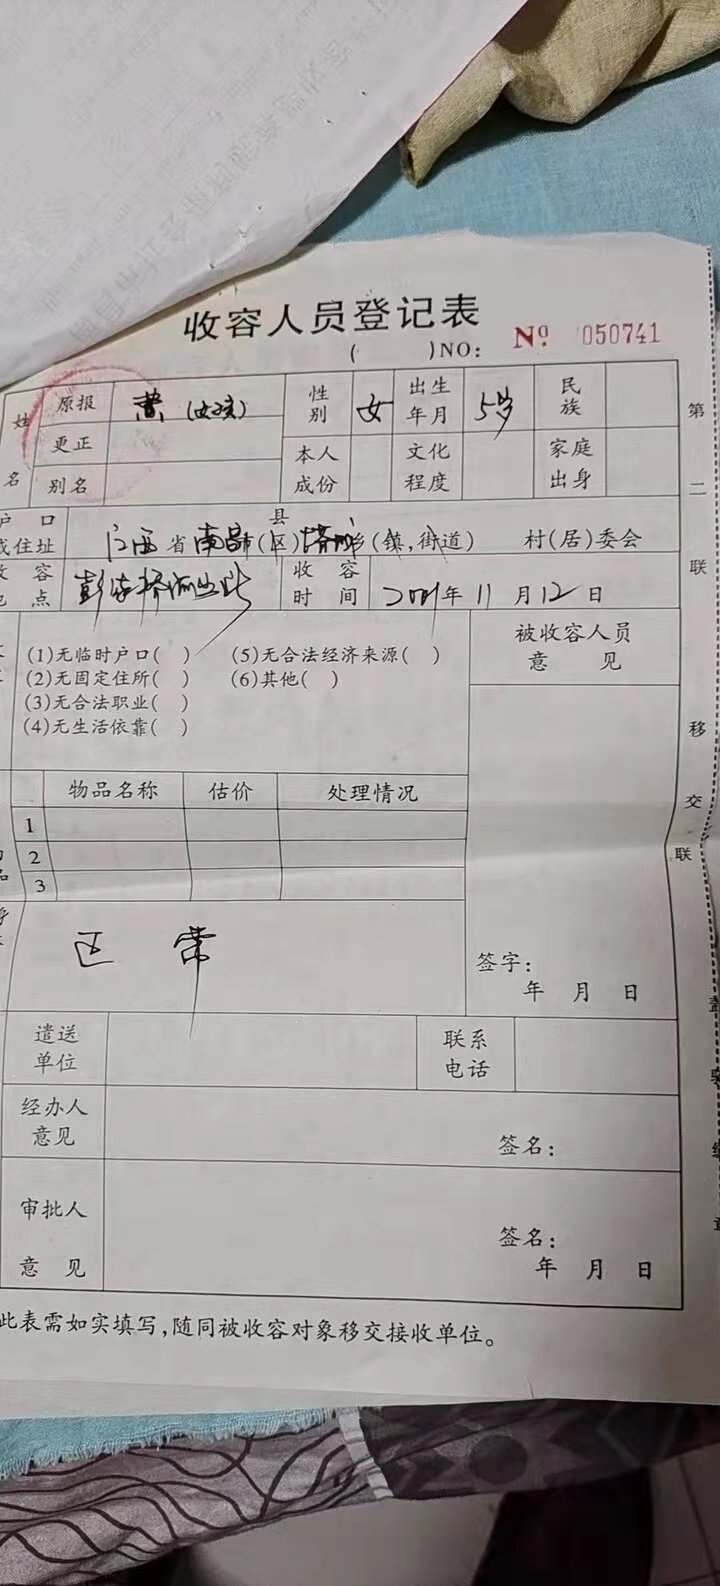 收容人员登记表
(　　)NO: Nº 050741
姓名 原报 黄(女孩) 性别 女 出生年月 5岁 民族
更正
别名 本人成份 文化程度 家庭出身
户口或住址 江西省南昌市(县区)乡(镇,街道) 村(居)委会
收容地点 收容时间 2001年11月12日
(1)无临时户口(　) (5)无合法经济来源(　)
(2)无固定住所(　) (6)其他(　)
(3)无合法职业(　)
(4)无生活依靠(　)
被收容人员意见
物品名称 估价 处理情况
1
2
3
正常
签字:
年 月 日
遣送单位 联系电话
经办人意见 签名:
审批人意见 签名:
年 月 日
此表需如实填写,随同被收容对象移交接收单位。
第二联 移交联